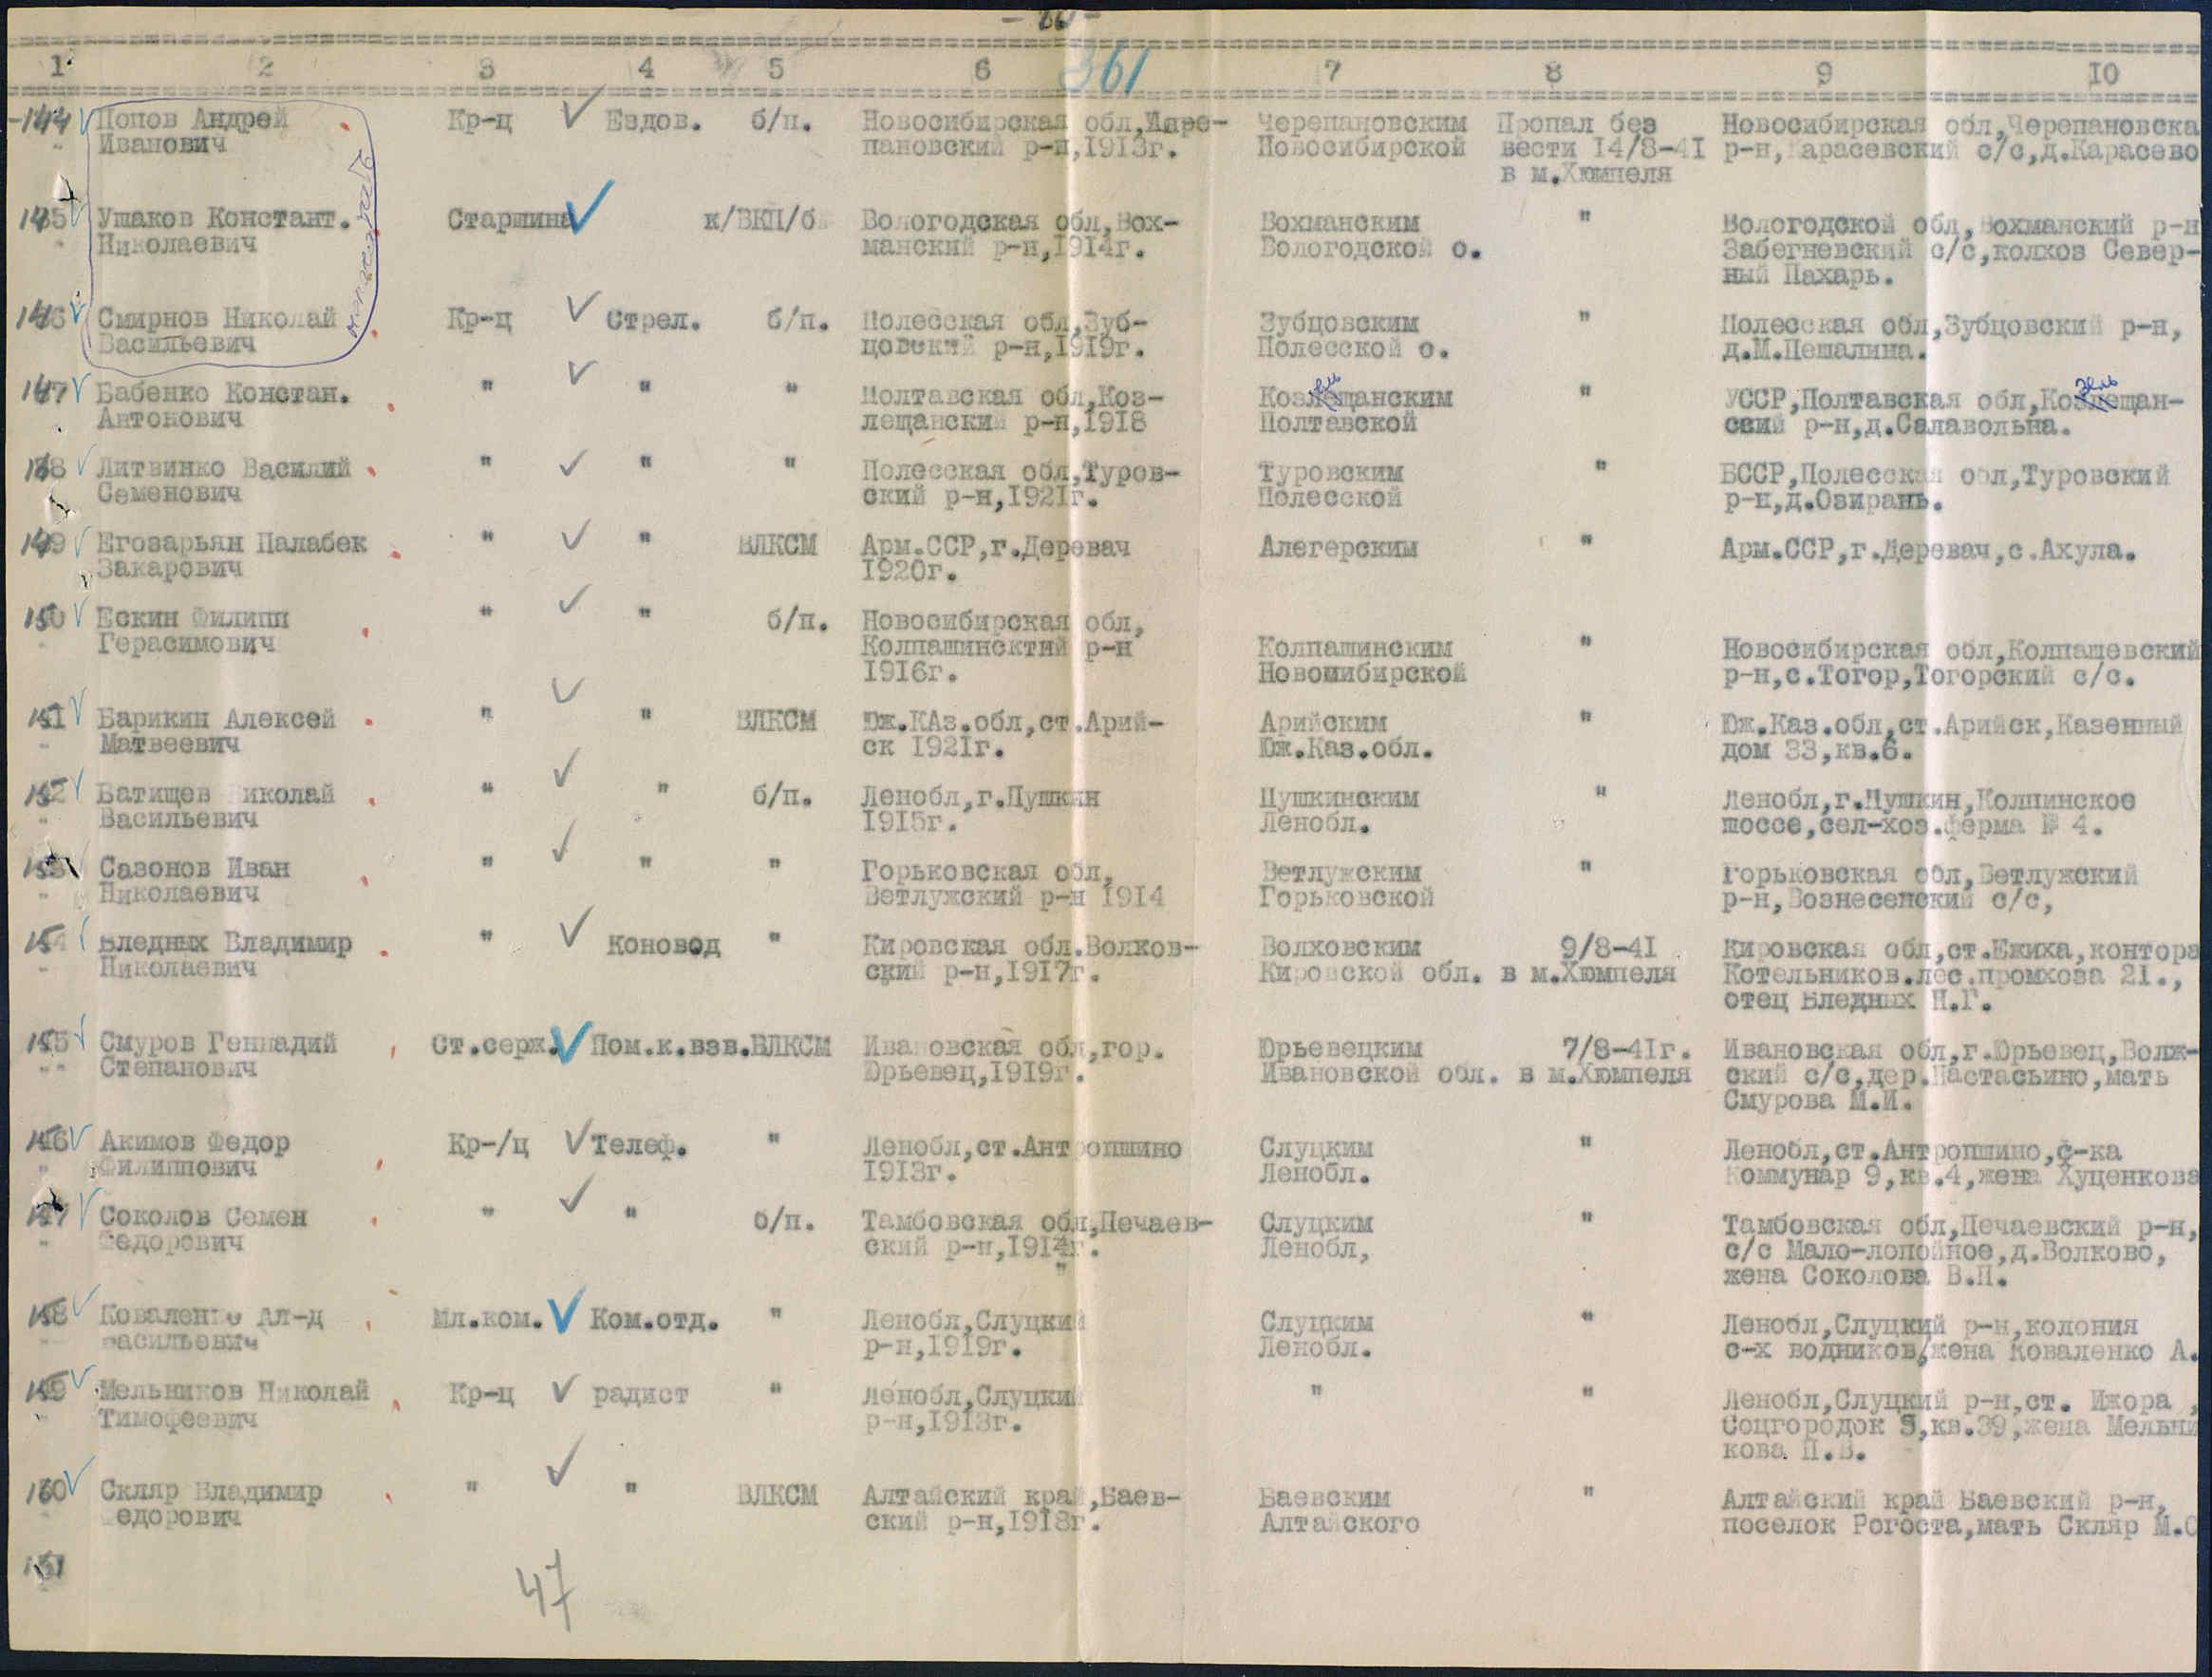 361
1 2 3 4 5 6 7 8 9 10
144 Попов Андрей Кр-ц Ездов. б/п. Новосибирская обл, Черепановским Пропал без Новосибирская обл,Черепановска
Иванович пановский р-н,1913г. Новосибирской вести 14/8-41 р-н,Карасевский с/с,д.Карасево
в м.Хюмпеля
145 Ушаков Констант. Старшина к/ВКП/б Вологодская обл,Вох- Вохманским " Вологодской обл,Вохманский р-н
Николаевич манский р-н,1914г. Вологодской о. Забегневский с/с,колхоз Север-
ный Пахарь.
146 Смирнов Николай Кр-ц Стрел. б/п. Полесская обл,Зуб- Зубцовским " Полесская обл,Зубцовский р-н,
Васильевич цовский р-н,1919г. Полесской о. д.М.Пешалина.
147 Бабенко Констан. " " " Полтавская обл,Коз- Козлещанским " УССР,Полтавская обл,Козлещан-
Антонович лещанский р-н,1918 Полтавской ский р-н,д.Салавольна.
148 Литвинко Василий " " " Полесская обл,Туров- Туровским " БССР,Полесская обл,Туровский
Семенович ский р-н,1921г. Полесской р-н,д.Озирань.
149 Егозарьян Палабек " " ВЛКСМ Арм.ССР,г.Деревач Алегерским " Арм.ССР,г.Деревач,с.Ахула.
Закарович 1920г.
150 Ескин Филипп " " б/п. Новосибирская обл,
Герасимович Колпашинсктий р-н Колпашинским " Новосибирская обл,Колпашевский
1916г. Новошибирской р-н,с.Тогор,Тогорский с/с.
151 Барикин Алексей " " ВЛКСМ Юж.КАз.обл,ст.Арий- Арийским " Юж.Каз.обл,ст.Арийск,Казенный
Матвеевич ск 1921г. Юж.Каз.обл. дом 33,кв.6.
152 Батищев иколай " " б/п. Ленобл,г.Пушкин Пушкинским " Ленобл,г.Пушкин,Колпинское
Васильевич 1915г. Ленобл. шоссе,сел-хоз.ферма № 4.
153 Сазонов Иван " " " Горьковская обл, Ветлужским " Горьковская обл,Ветлужский
Николаевич Ветлужский р-н 1914 Горьковской р-н,Вознесенский с/с,
154 Бледных Владимир " Коновод " Кировская обл.Волхов- Волховским 9/8-41 Кировская обл,ст.Ежиха,контора
Николаевич ский р-н,1917г. Кировской обл. в м.Хюмпеля Котельников.лес.промхоза 21.,
отец Бледных Н.Г.
155 Смуров Геннадий Ст.серж. Пом.к.взв.ВЛКСМ Ивановская обл,гор. Юрьевецким 7/8-41г. Ивановская обл,г.Юрьевец,Волж-
Степанович Юрьевец,1919г. Ивановской обл. в м.Хюмпеля ский с/с,дер.Настасьино,мать
Смурова М.И.
156 Акимов Федор Кр-/ц Телеф. " Ленобл,ст.Антропшино Слуцким " Ленобл,ст.Антропшино,ф-ка
Филиппович 1913г. Ленобл. Коммунар 9,кв.4,жена Хуценкова
157 Соколов Семен " " б/п. Тамбовская обл,Печаев- Слуцким " Тамбовская обл,Печаевский р-н,
Федорович ский р-н,1914г. Ленобл, с/с Мало-лопойное,д.Волково,
жена Соколова В.П.
158 Коваленко Ал-д Мл.ком. Ком.отд. " Ленобл,Слуцкий Слуцким " Ленобл,Слуцкий р-н,колония
Васильевич р-н,1919г. Ленобл. с-х водников,жена Коваленко А.
159 Мельников Николай Кр-ц радист " Ленобл,Слуцкий " " Ленобл,Слуцкий р-н,ст. Ижора ,
Тимофеевич р-н,1913г. Соцгородок 5,кв.39,жена Мельни
кова П.В.
160 Скляр Владимир " " ВЛКСМ Алтайский край,Баев- Баевским " Алтайский край Баевский р-н,
едорович ский р-н,1918г. Алтайского поселок Рогоста,мать Скляр М.С
47